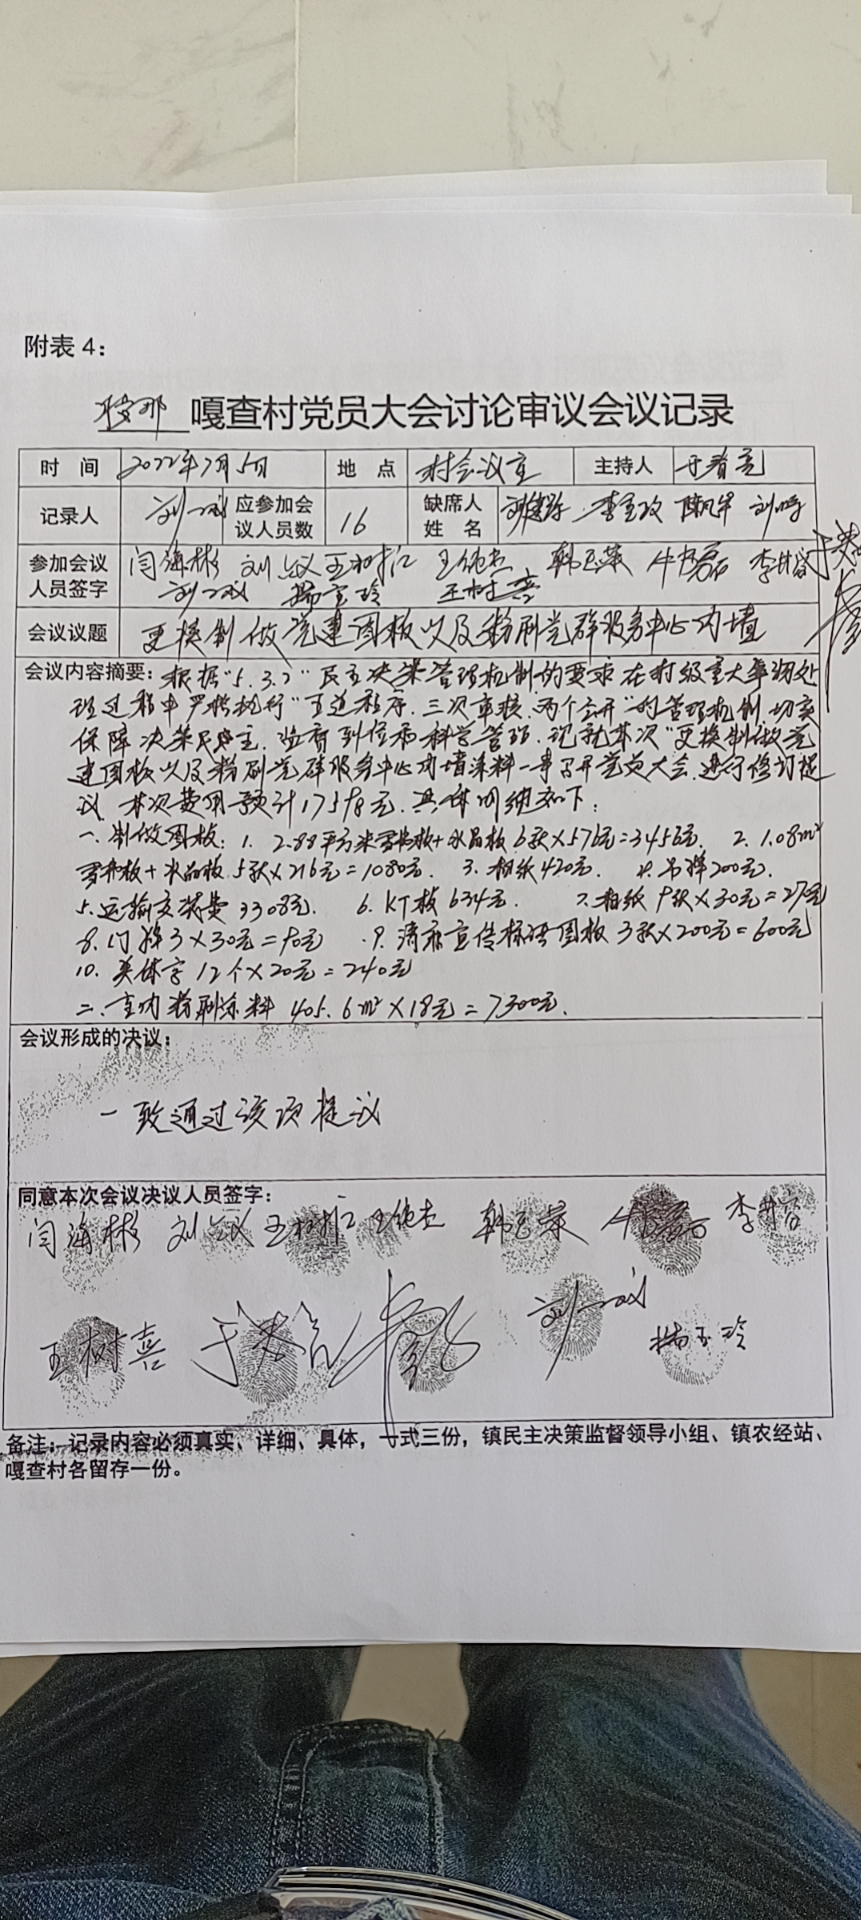 附表 4：
嘎查村党员大会讨论审议会议记录
时 间 2022年7月5日 地 点 村会议室 主持人 于春亮
记录人 刘一斌 应参加会议人员数 16 缺席人姓名
参加会议人员签字 闫海彬 王树江 韩玉荣
王树喜
会议议题 更换制做党建图板以及粉刷党群服务中心内墙
会议内容摘要：根据“5.3.2”民主决策管理机制的要求 在村级重大事项处
理过程中严格执行“五道程序、三次审核、两个公开”的管理机制 切实
保障决策民主、监督到位和科学管理，现就本次“更换制做党
建图板以及粉刷党群服务中心内墙涂料一事召开党员大会，进行修订提
议 本次费用预计17598元，具体明细如下：
一、制做图板：1. 2.88平方米雪弗板+水晶板 6块×576元=3456元， 2. 1.08m²
雪弗板+水晶板 5块×216元=1080元. 3. 相纸420元. 4. 吊牌200元.
5.运输安装费3308元. 6. KT板 634元. 7. 相纸 9张×30元=27元
8. 门牌3×30元=90元 9. 清廉宣传标语图板 3块×200元=600元
10. 美体字 12个×20元=240元
二、室内粉刷涂料 405.6m²×18元=7300元.
会议形成的决议：
一致通过该项提议
同意本次会议决议人员签字：
闫海彬 王树江 韩玉荣
王树喜 刘一斌
备注：记录内容必须真实、详细、具体，一式三份，镇民主决策监督领导小组、镇农经站、
嘎查村各留存一份。